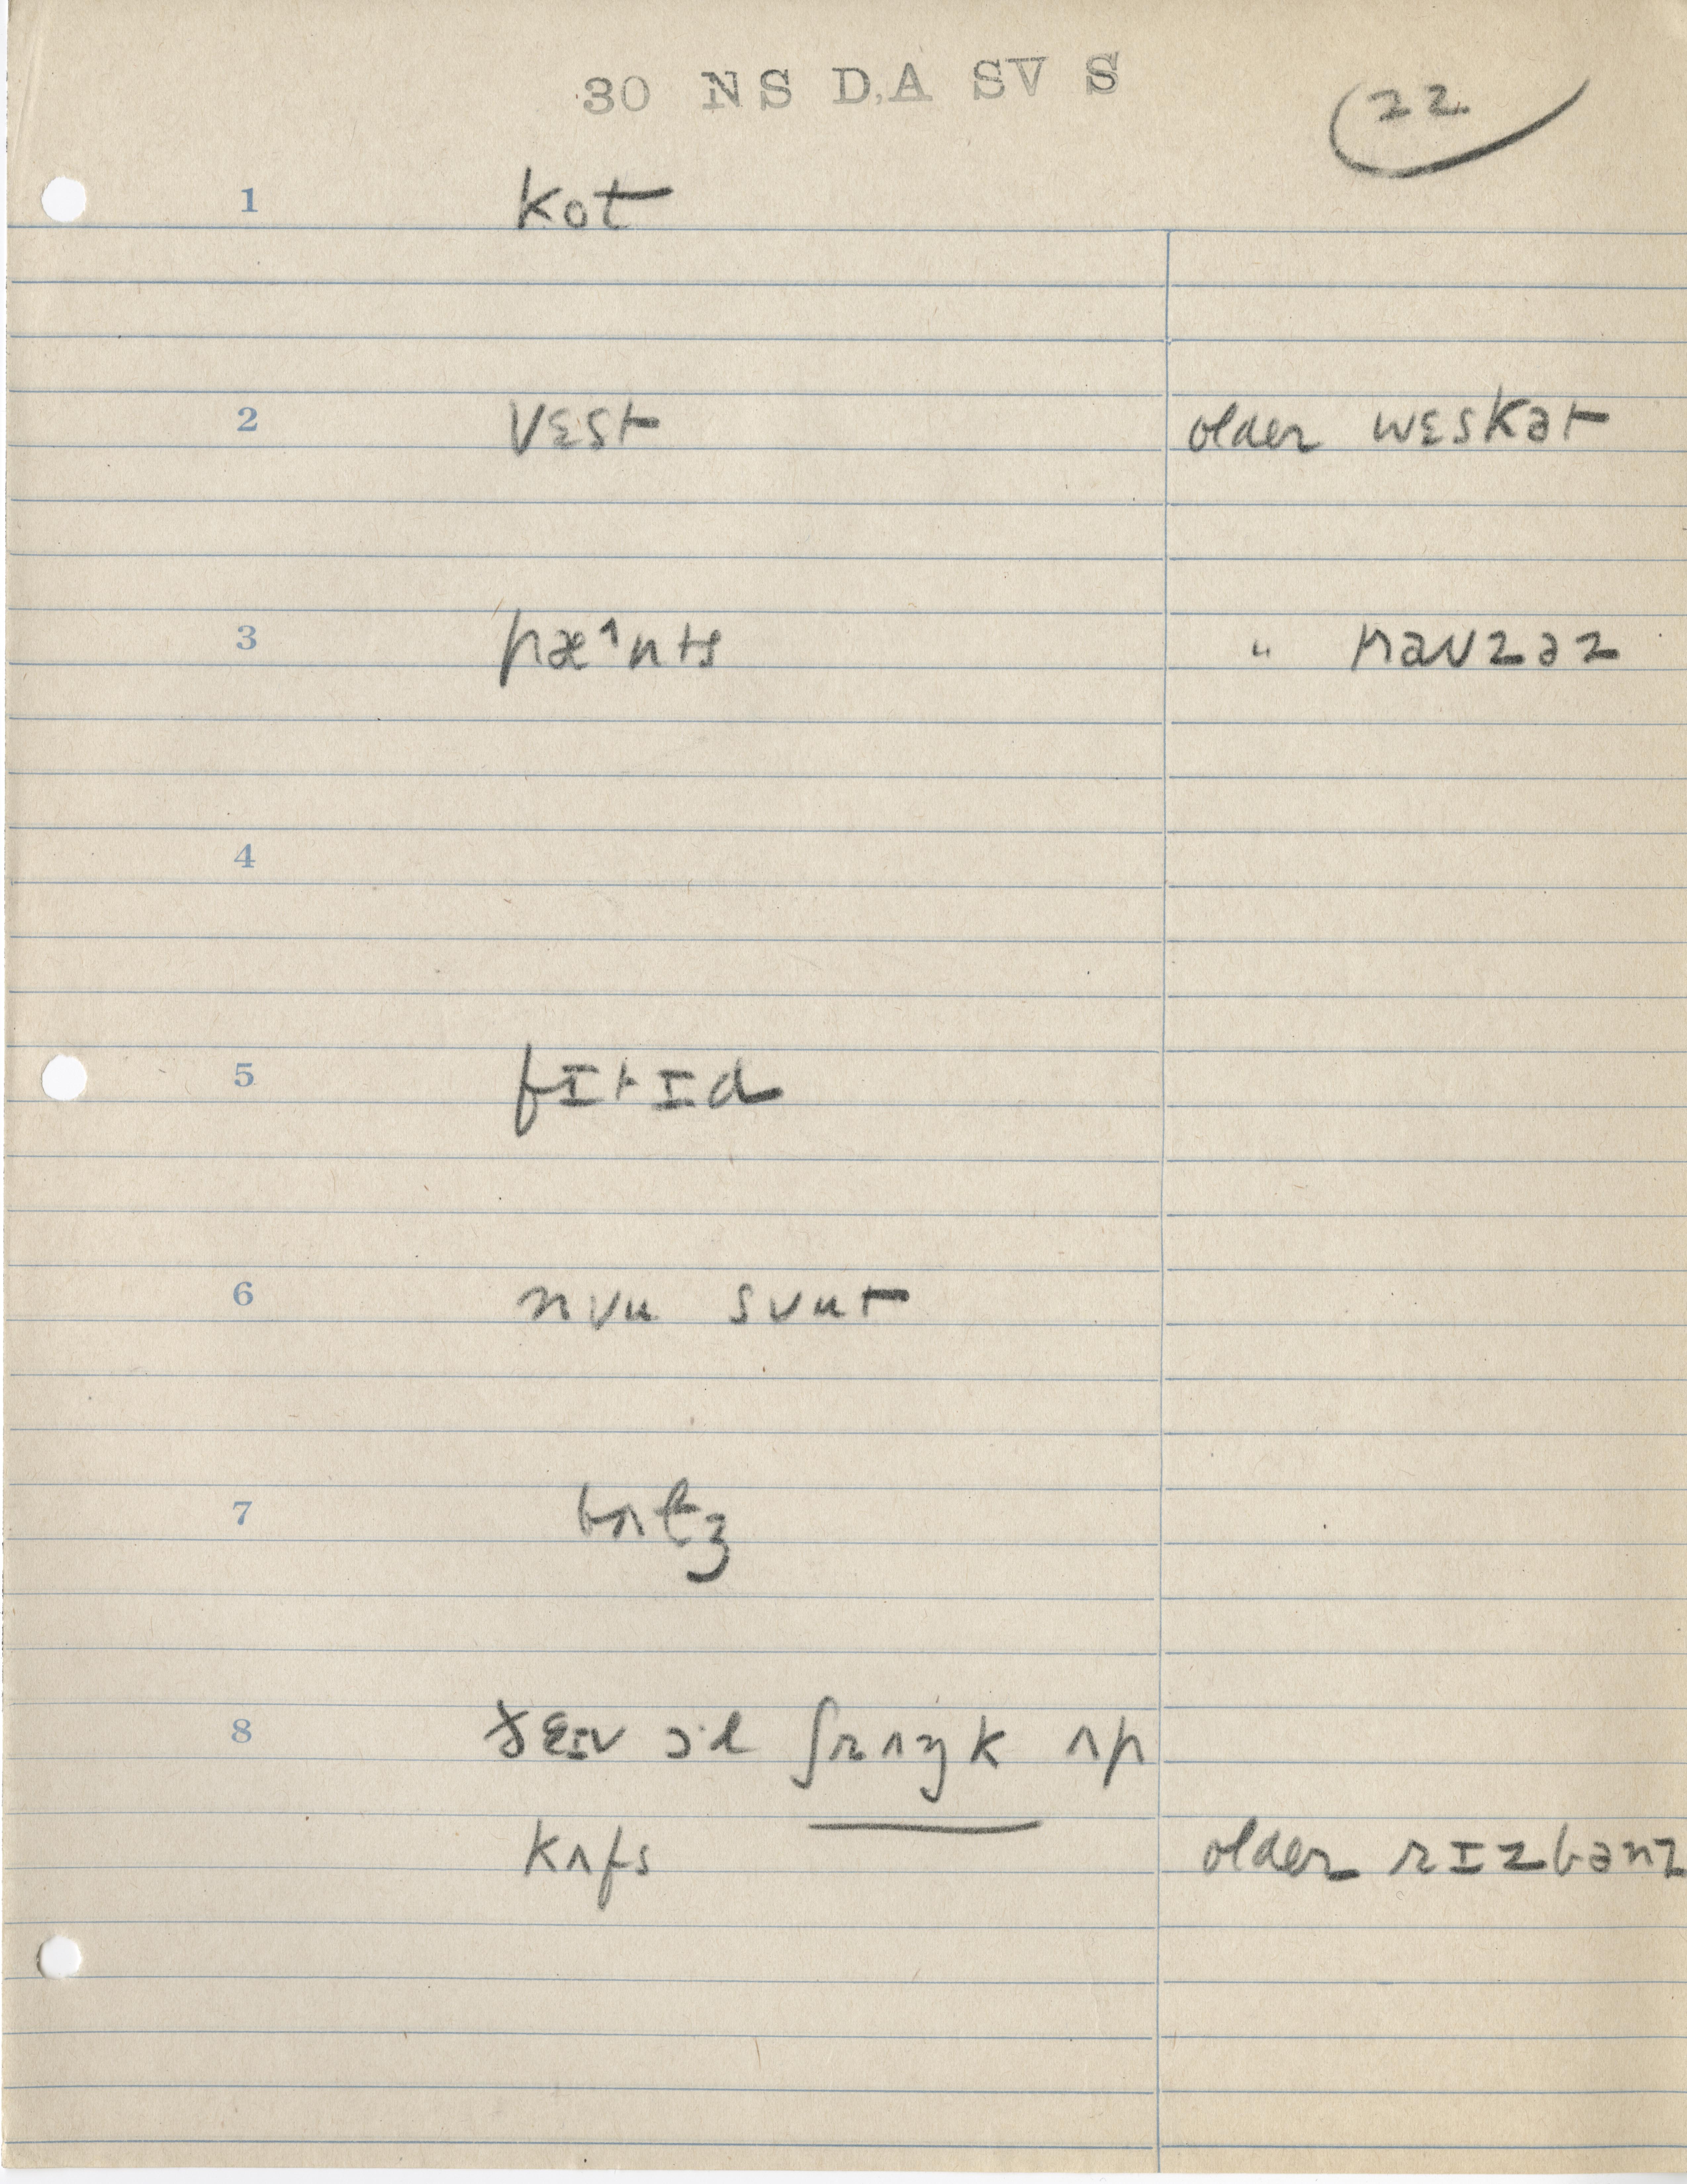 30 NS D.A SV S
22
1 kot
2 vɛst older wɛskət
3 pæ˄nts " traʊzəz
4
5 fɪtɪd
6 nʊu sʊut
7 bʌlʒ
8 ðɛɪv ɔ·l ʃrʌŋk ʌp
kʌfs older rɪzbənz